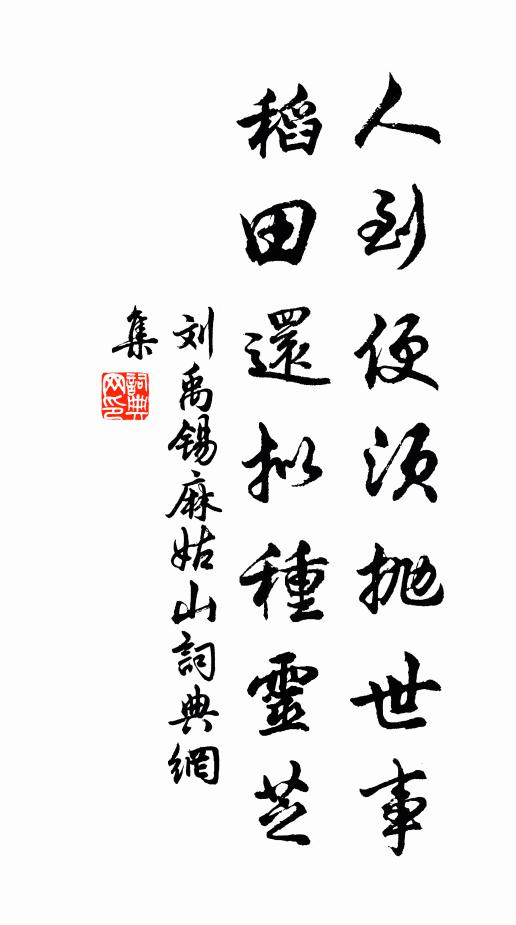 人到便須抛世事
稻田還拟種靈芝
刘禹锡麻姑山詞典網
集
詞典网印